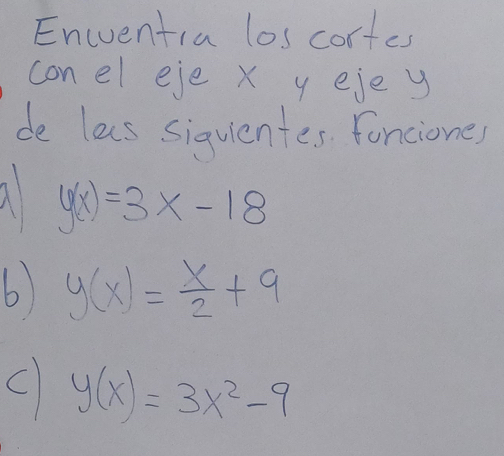 Encuentra los cortes
con el eje x y eje y
de las siguientes funciones
a) y(x)=3x-18
b) y(x)=x/2+9
c) y(x)=3x²-9